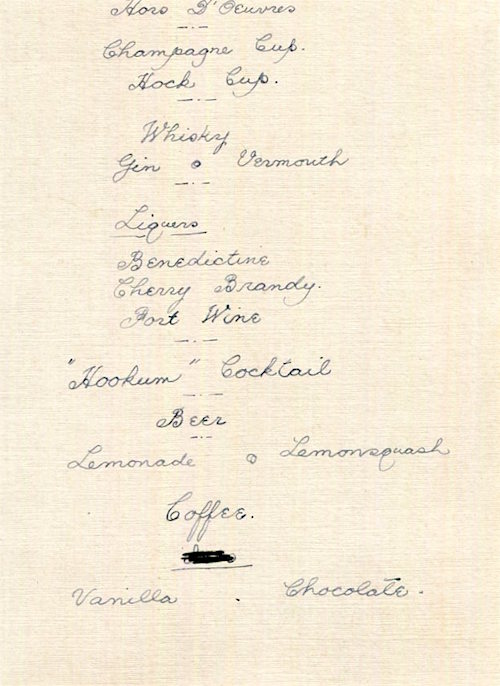 Hors D'Oeuvres
Champagne Cup.
Hock Cup.
Whisky
Gin o Vermouth
Liquers
Benedictine
Cherry Brandy.
Port Wine
"Hookum" Cocktail
Beer
Lemonade o Lemonsquash
Coffee.
Vanilla . Chocolate.